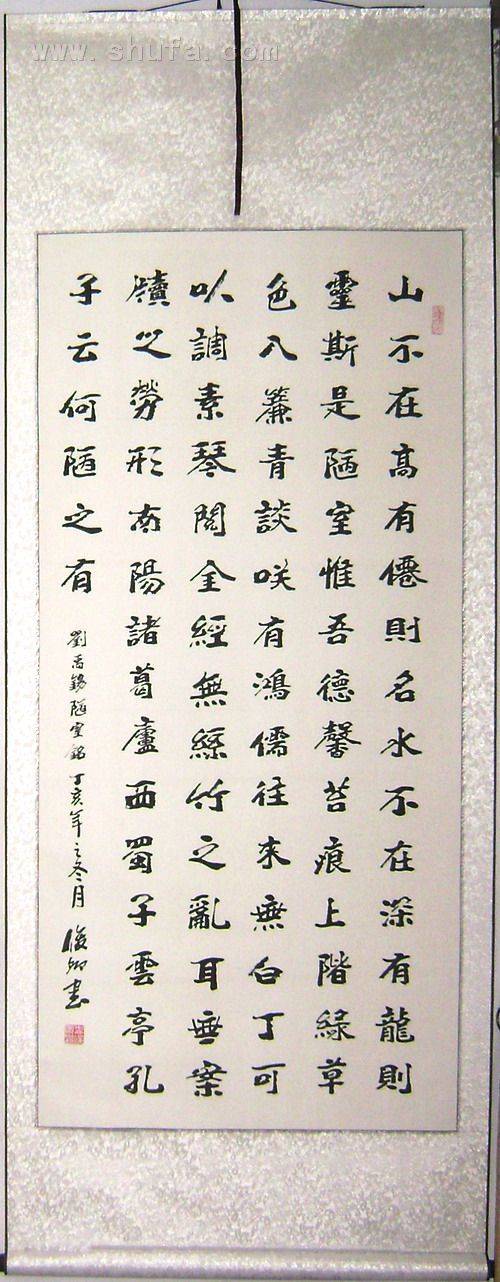 www.shufa.com
山不在高有僊則名水不在深有龍則
靈斯是陋室惟吾德馨苔痕上階緑草
色入簾青談咲有鴻儒往来無白丁可
以調素琴閲金經無絲竹之亂耳無案
牘之勞形南陽諸葛廬西蜀子雲亭孔
子云何陋之有
劉禹錫陋室銘丁亥年之冬月俊書